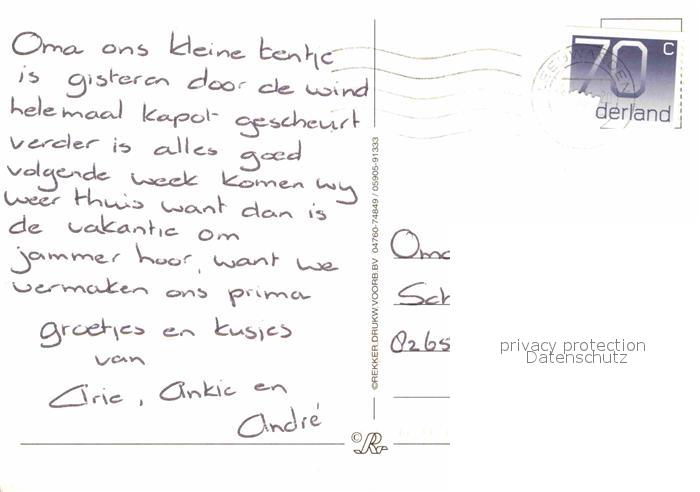 Oma ons kleine tentje
is gisteren door de wind
helemaal kapot gescheurt
verder is alles goed
volgende week komen wy
weer thuis want dan is
de vakantie om
jammer hoor, want we
vermaken ons prima
groetjes en kusjes
van
Arie, Ankie en
André
©REKKER.DRUKW.VOORB.BV 04760-74849 / 05905-91333
© R
70 c
derland
Oma
Sch
8265
privacy protection
Datenschutz